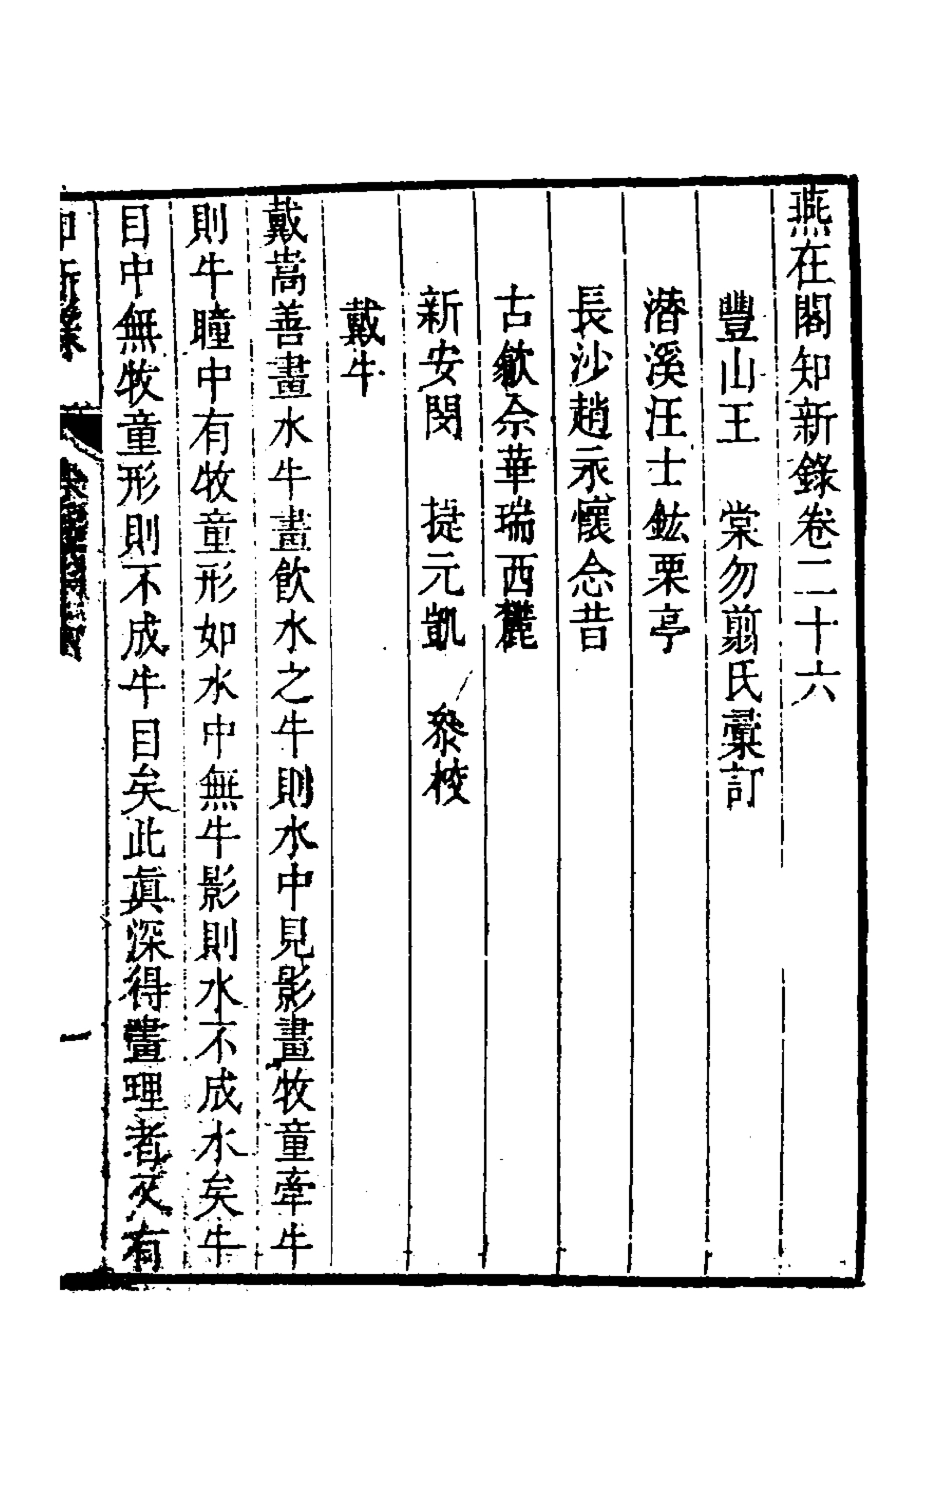 燕在閣知新錄卷二十六
豐山王　棠勿翦氏彚訂
潛溪汪士鋐栗亭
長沙趙永懷念昔
古歙佘華瑞西麓
新安閔　㨗元凱　叅校
戴牛
戴嵩善畫水牛畫飲水之牛則水中見影畫牧童牽牛
則牛瞳中有牧童形如水中無牛影則水不成水矣牛
目中無牧童形則不成牛目矣此眞深得畫理者又有
知新錄
一